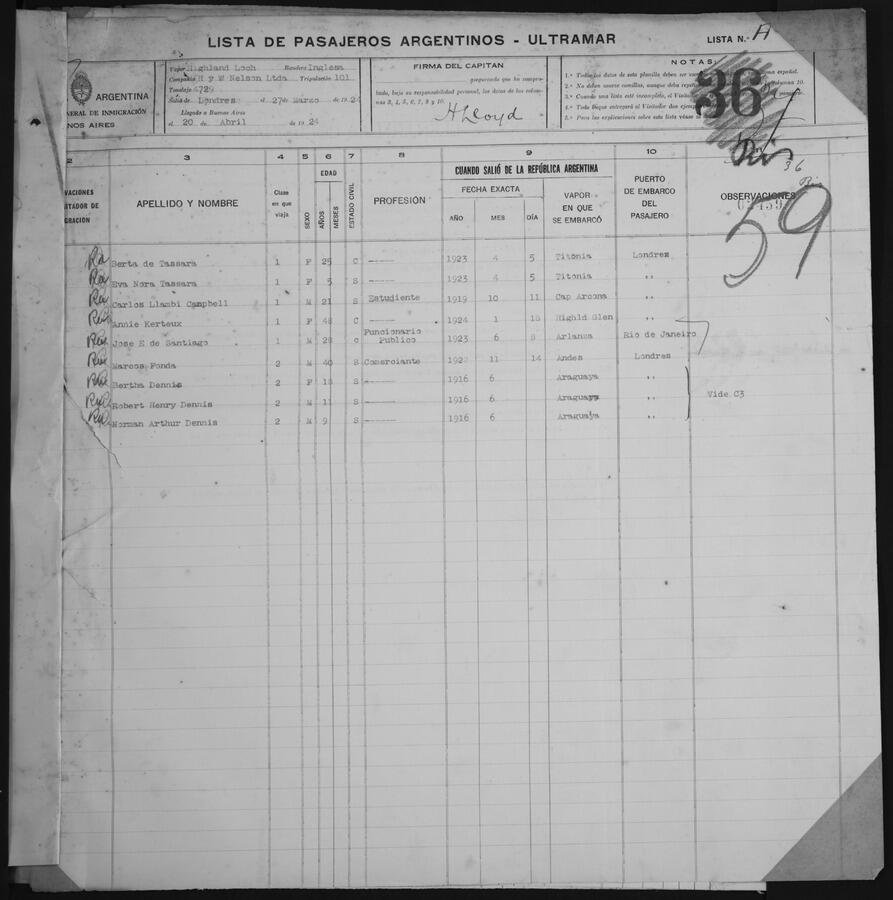 LISTA DE PASAJEROS ARGENTINOS - ULTRAMAR
LISTA N.º A
ARGENTINA
GENERAL DE INMIGRACIÓN
NOS AIRES
Vapor Highland Loch Bandera Inglesa
Compañía H y W Nelson Ltda Tripulación 101
Tonelaje 4729
Salió de Londres el 27 de Marzo de 1924
Llegado a Buenos Aires
el 20 de Abril de 1924
FIRMA DEL CAPITAN
preguntado que ha compro-
bado, bajo su responsabilidad personal, los datos de las colum-
nas 3, 4, 5, 6, 7, 8 y 10.
H Lloyd
NOTAS:
1.º Todos los datos de esta planilla deben ser
2.º No deben usarse comillas, aunque deba
3.º Cuando una lista esté incompleta, el
4.º Todo Buque entregará al Visitador dos
5.º Para las explicaciones sobre esta lista véase
36
Rio
36
59
2 3 4 5 6 7 8 9 10
VACIONES
TADOR DE
GRACIÓN
APELLIDO Y NOMBRE
Clase en que viaja
SEXO
EDAD
AÑOS
MESES
ESTADO CIVIL
PROFESIÓN
CUANDO SALIÓ DE LA REPÚBLICA ARGENTINA
FECHA EXACTA
AÑO MES DÍA
VAPOR EN QUE SE EMBARCÓ
PUERTO DE EMBARCO DEL PASAJERO
OBSERVACIONES
Rio Berta de Tassara 1 F 25 C —— 1923 4 5 Titónia Londrez
Rio Eva Nora Tassara 1 F 5 S —— 1923 4 5 Titonia ,,
Rio Carlos Llambi Campbell 1 M 21 S Estudiente 1919 10 11 Cap Arcona ,,
Rio Annie Kerteux 1 F 48 C —— 1924 1 15 Highld Glen ,,
Rio Jose E de Santiago 1 M 28 C Funcionario Publico 1923 6 8 Arlanza Rio de Janeiro
Rio Marcos Fonda 2 M 40 S Comerciante 1922 11 14 Andes Londres
Rio Bertha Dennis 2 F 18 S —— 1916 6 Araguaya ,,
Rio Robert Henry Dennis 2 M 11 S —— 1916 6 Araguaya ,, Vide C3
Rio Norman Arthur Dennis 2 M 9 S —— 1916 6 Araguaya ,,